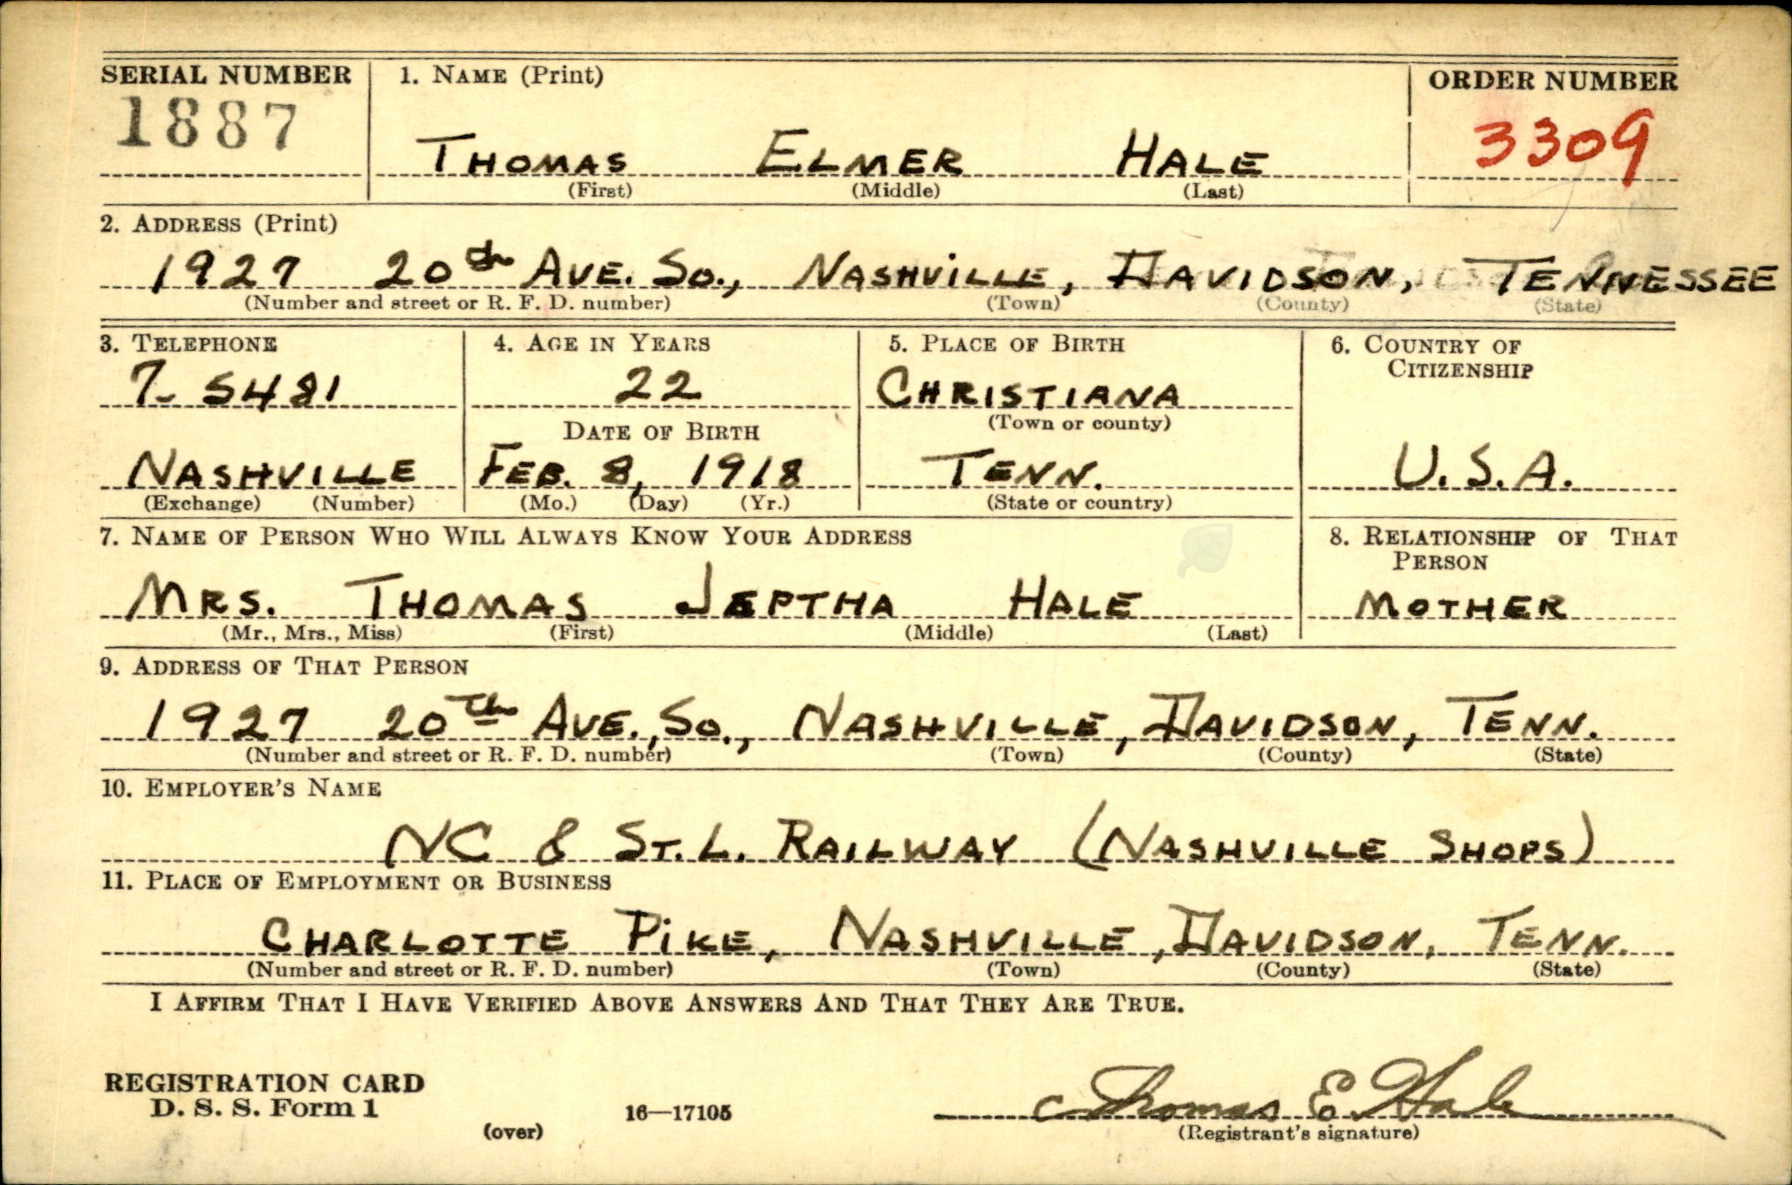 SERIAL NUMBER 1. NAME (Print) ORDER NUMBER
1887 THOMAS ELMER HALE 3309
(First) (Middle) (Last)
2. ADDRESS (Print)
1927 20th AVE. So., NASHVILLE, DAVIDSON, TENNESSEE
(Number and street or R. F. D. number) (Town) (County) (State)
3. TELEPHONE 4. AGE IN YEARS 5. PLACE OF BIRTH 6. COUNTRY OF CITIZENSHIP
7- 5481 22 CHRISTIANA
DATE OF BIRTH (Town or county)
NASHVILLE FEB. 8, 1918 TENN. U.S.A.
(Exchange) (Number) (Mo.) (Day) (Yr.) (State or country)
7. NAME OF PERSON WHO WILL ALWAYS KNOW YOUR ADDRESS 8. RELATIONSHIP OF THAT PERSON
MRS. THOMAS JEPTHA HALE MOTHER
(Mr., Mrs., Miss) (First) (Middle) (Last)
9. ADDRESS OF THAT PERSON
1927 20th AVE., So., NASHVILLE, DAVIDSON, TENN.
(Number and street or R. F. D. number) (Town) (County) (State)
10. EMPLOYER'S NAME
NC & ST. L. RAILWAY (NASHVILLE SHOPS)
11. PLACE OF EMPLOYMENT OR BUSINESS
CHARLOTTE PIKE, NASHVILLE, DAVIDSON, TENN.
(Number and street or R. F. D. number) (Town) (County) (State)
I AFFIRM THAT I HAVE VERIFIED ABOVE ANSWERS AND THAT THEY ARE TRUE.
REGISTRATION CARD
D. S. S. Form 1 16—17105 Thomas E Hale
(over) (Registrant's signature)